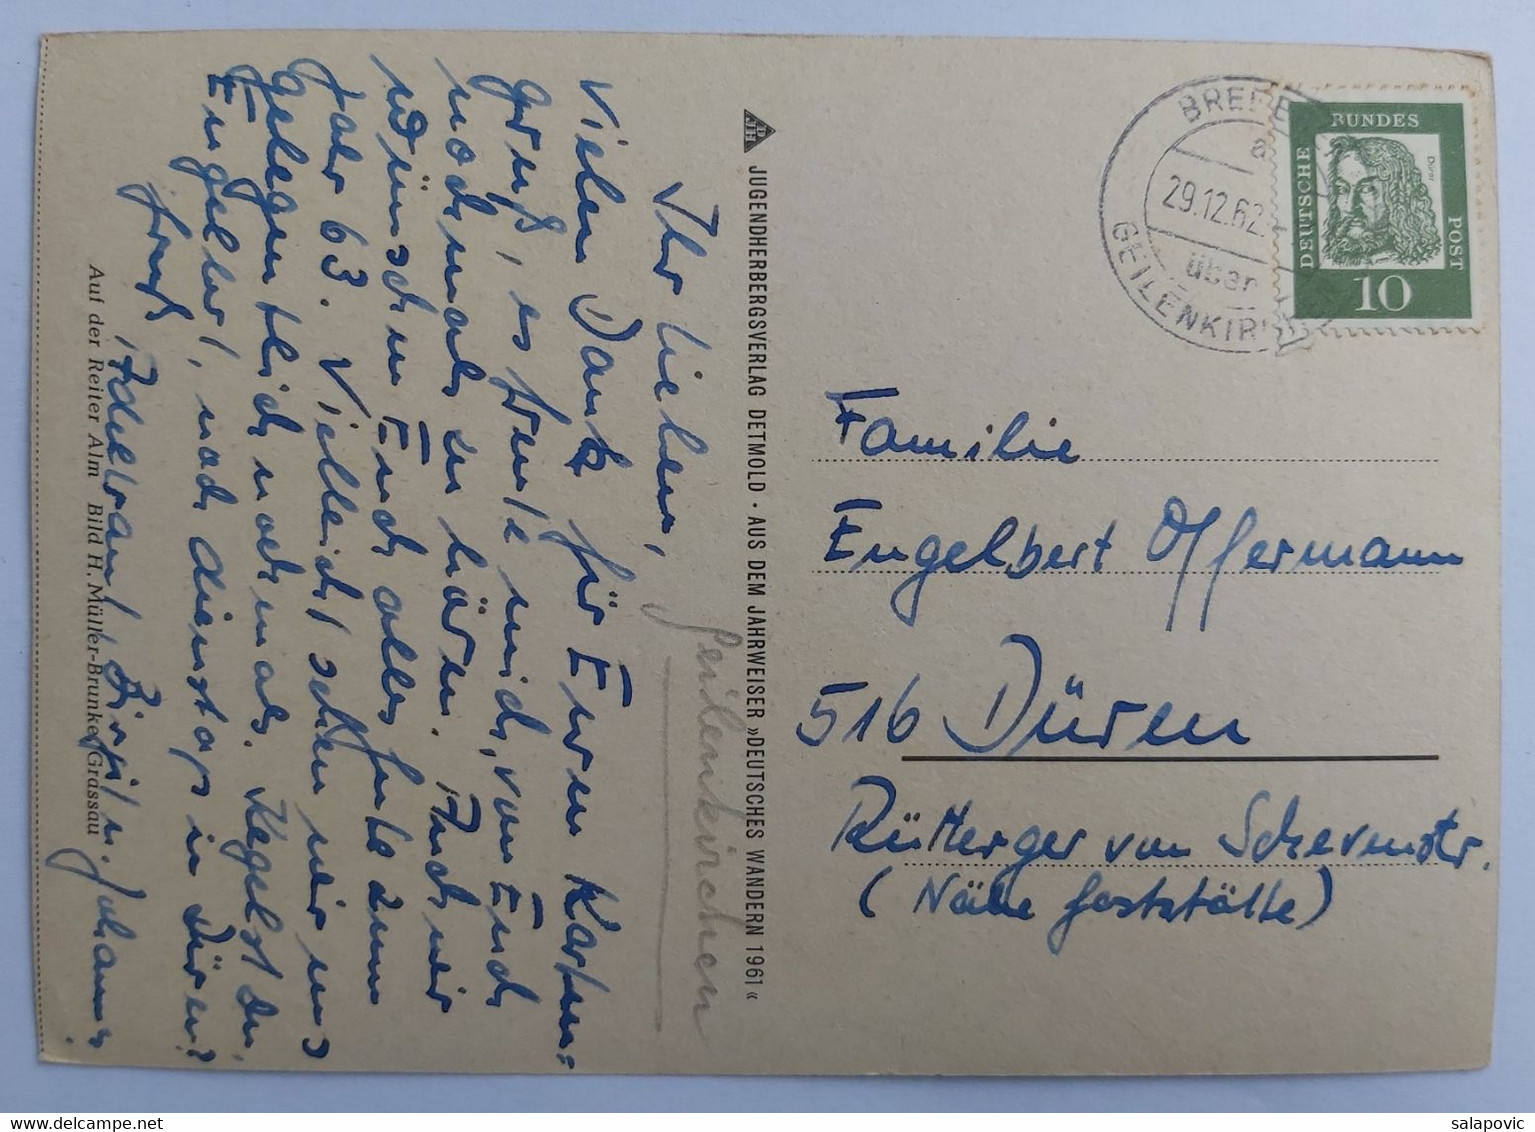 Ihr Lieben,
Vielen Dank für Euren Karten-
gruß, es freute mich, von Euch
nochmals zu hören. Auch wir
wünschen Euch alles Gute zum
Jahr 63. Vielleicht sehen wir uns
gelegentlich nochmals. Kegelst Du,
Engelbert, noch dienstags in Düren?
Gruß, Adeltraud, Birgit u. Johannes.
Auf der Reiter Alm Bild H. Müller-Brunke, Grassau
Geilenkirchen
DJH JUGENDHERBERGSVERLAG DETMOLD · AUS DEM JAHRWEISER »DEUTSCHES WANDERN 1961«
BREBE
a
29.12.62
über
GEILENKIR
DEUTSCHE
BUNDES
POST
Dürer
10
Familie
Engelbert Offermann
516 Düren
Rüttger von Scheven str.
(Nähe Gaststätte)
salapovic